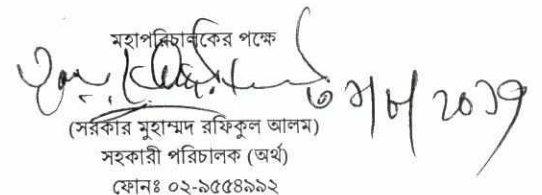 মহাপরিচালকের পক্ষে
(সরকার মুহাম্মদ রফিকুল আলম)
সহকারী পরিচালক (অর্থ)
ফোনঃ ০২-৯৫৫৪৯৯২